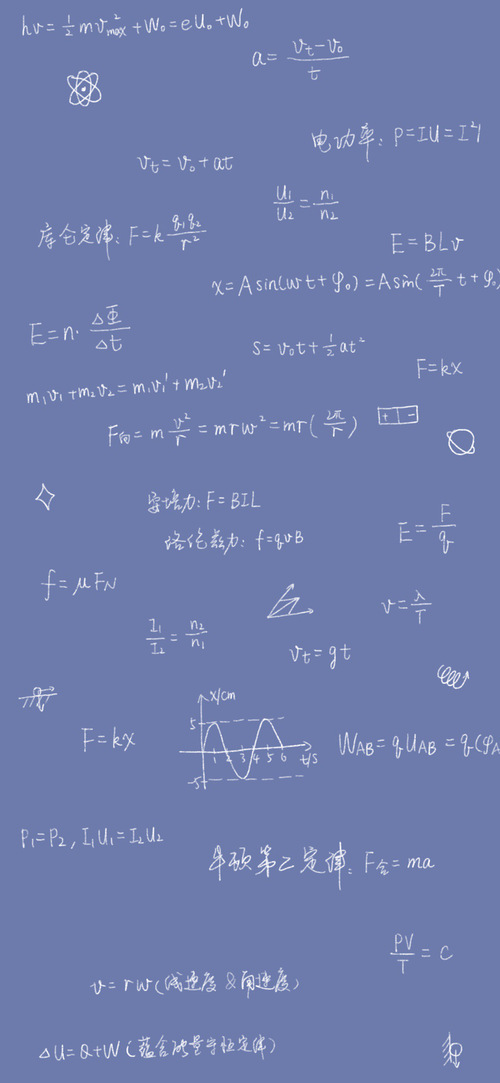 hν = 1/2 mv²max + W₀ = eU₀ + W₀
a = (vt − v₀)/t
电功率: P=IU=I²r
vt = v₀ + at
U₁/U₂ = n₁/n₂
库仑定律: F = k q₁q₂/r²
E = BLv
x = A sin(wt + φ₀) = A sin(2π/T t + φ₀
E = n · ΔΦ/Δt
s = v₀t + 1/2 at²
F = kx
m₁v₁ + m₂v₂ = m₁v₁′ + m₂v₂′
F向 = m v²/r = mrw² = mr(2π/r)
+ −
安培力: F = BIL
洛伦兹力: f = qvB
E = F/q
f = μFN
v = λ/T
I₁/I₂ = n₂/n₁
vt = gt
x/cm
5
1 2 3 4 5 6 t/s
-5
F = kx
WAB = qUAB = q(φA
P₁ = P₂, I₁U₁ = I₂U₂
牛顿第二定律: F合 = ma
PV/T = C
v = rw (线速度 & 角速度)
ΔU = Q + W (蕴含能量守恒定律)